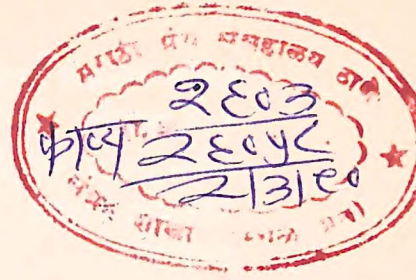 मराठी ग्रंथ संग्रहालय ठाणे
२६०३
काव्य २६०५८
२|३|६०
शाखा